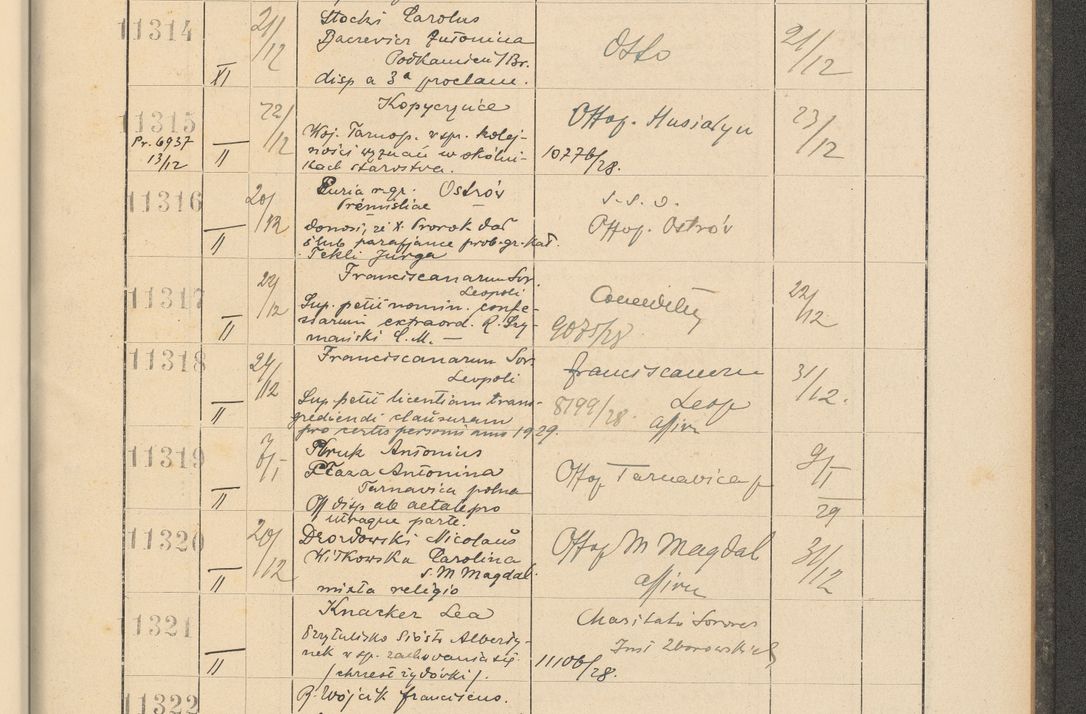 11314
21/12
XI
Stocki Carolus
Bacrevicz Antonina
Podkamień / Br.
disp a 3ª proclam.
Otto
21/12
11315
Pr. 6937
13/12
22/12
II
Kopyczyńce
Woj. Tarnop. w sp. kolej-
ności wyznań w okólni-
kach starostwa.
Offop. Husiatyn
10776/28.
23/12
11316
20/12
II
Curia r. gr. Ostrów
Premisliae
donosi, że X. Prorok dał
ślub parafjance prob. gr. kat.
Tekli Jurga
s. s. o.
Offop. Ostrów
11317
22/12
II
Franciscanarum Sor.
Leopoli
Sup. petit nomin. confe-
ssarium extraord. R. Szy-
mański C. M. —
9075/28
22/12
11318
24/12
II
Franciscanarum Sor.
Leopoli
Sup. petit licentiam trans-
grediendi clausuram
pro certis personis anno 1929.
franciscanarum
8199/28. Leop
affirm
31/12.
11319
7/I
II
Kruk Antonius
Płaza Antonina
Tarnavica polna
Off disp ab aetate pro
utraque parte.
Offop Tarnavica p
9/I
29
11320
20/12
II
Dzordowski Nicolaus
Witkowska Carolina
S. M Magdal.
mixta religio
Offop M Magdal
affirm
31/12
11321
II
Knacker Lea
Przytulisko Sióstr Alberty-
nek w sp. zachowania się
/chrzest żydówki/.
Charitati Sorores
Inst Zborowskich
11106/28.
11322
R. Wójcik franciscus.